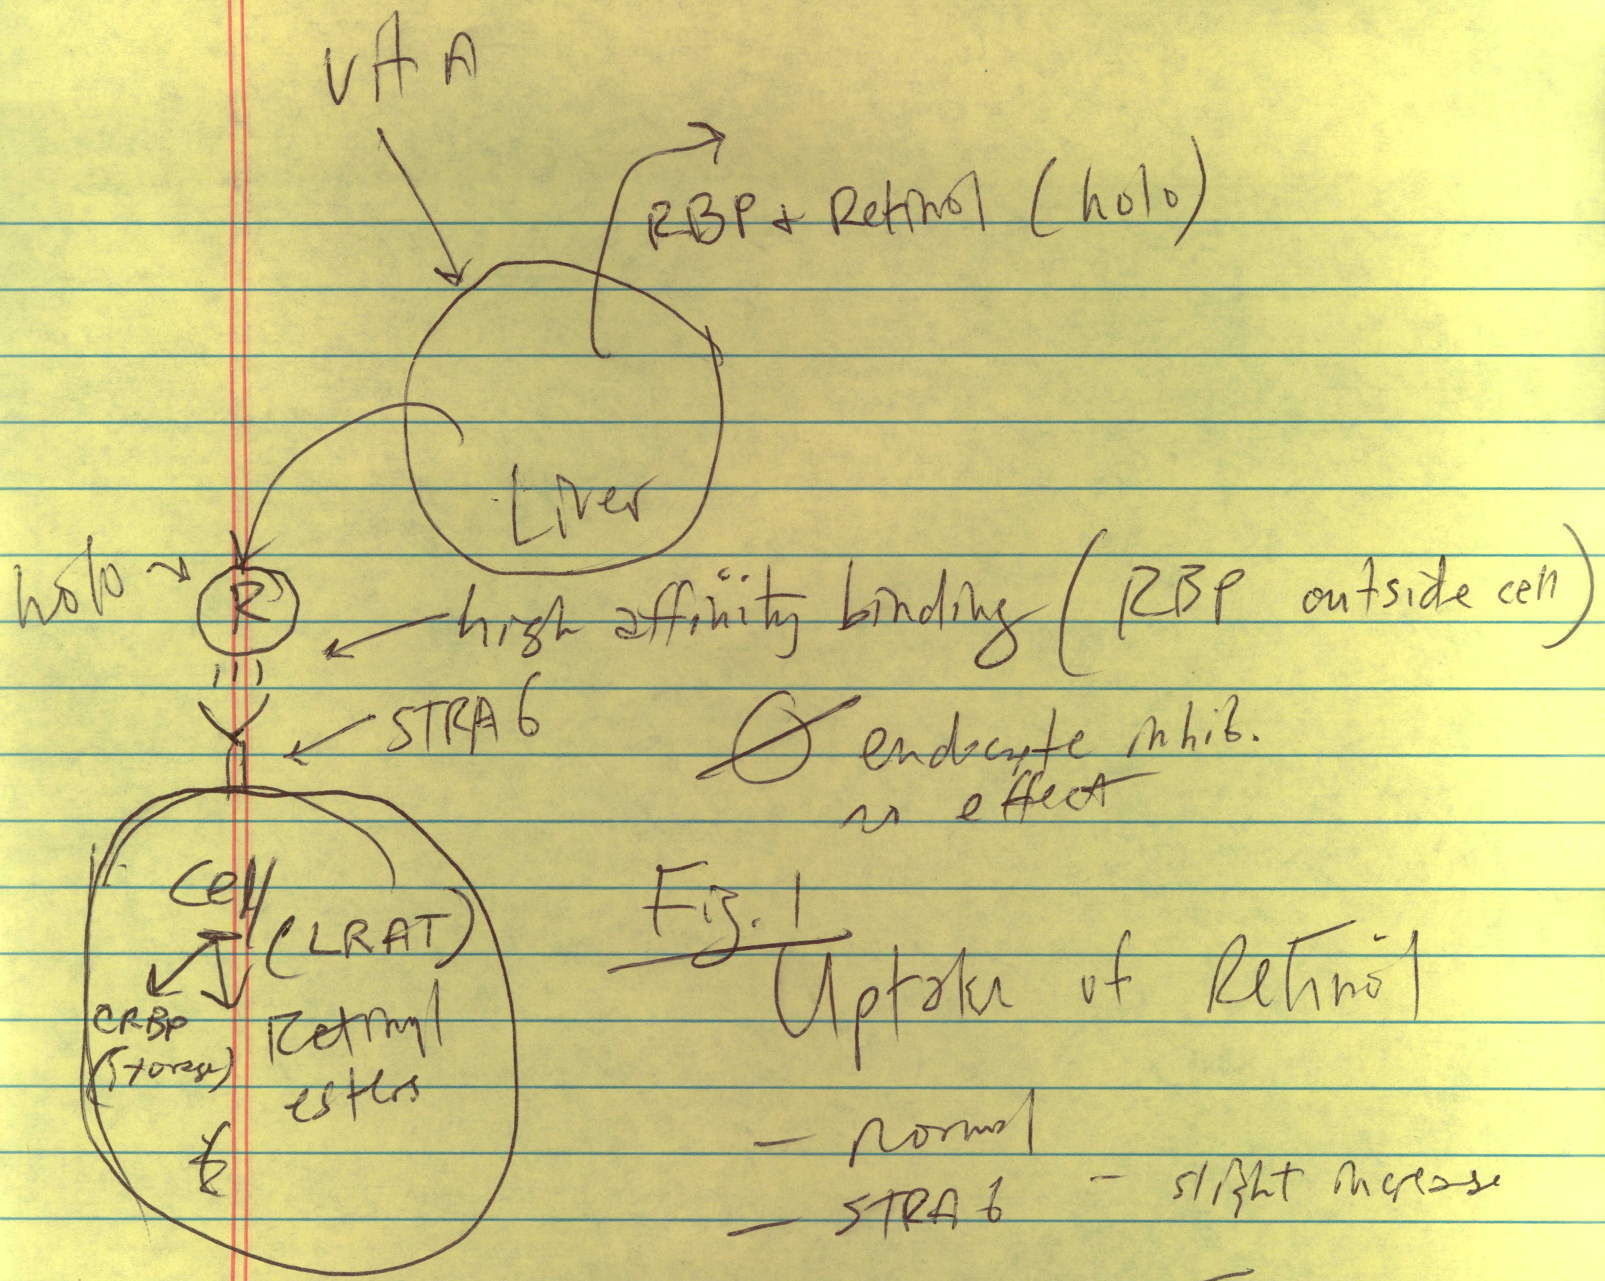 Vit A
RBP + Retinol (holo)
Liver
holo
R
high affinity binding (RBP outside cell)
STRA6
endocyte inhib.
effect
Cell
(LRAT)
CRBP
(storage)
Retinyl
esters
Fig. 1
Uptake of Retinol
- normal
- STRA6 - slight increase